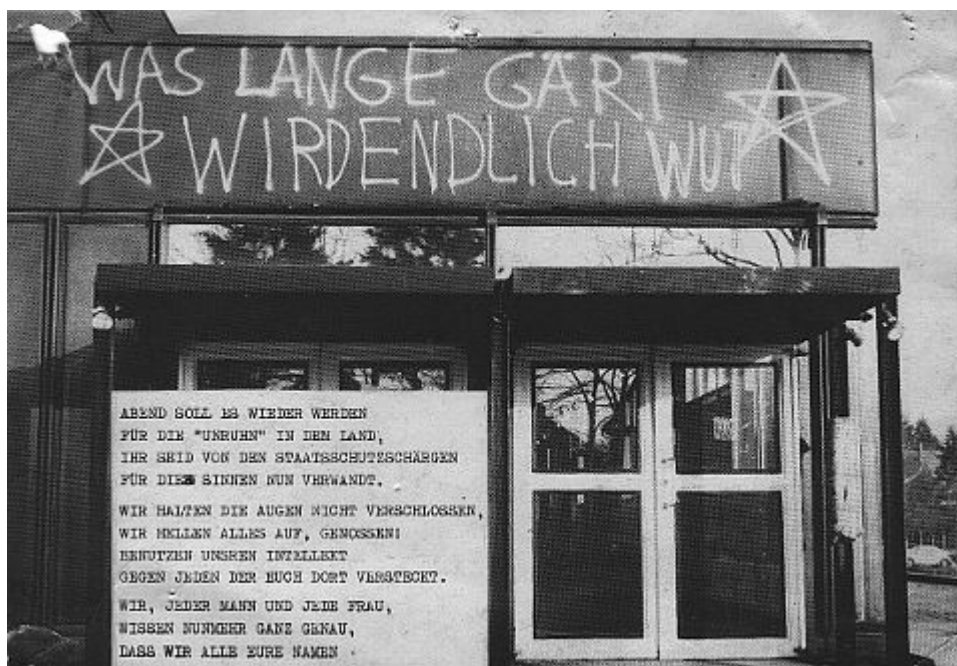 WAS LANGE GÄRT
WIRDENDLICH WUT
ABEND SOLL ES WIEDER WERDEN
FÜR DIE "UNRUHN" IN DEM LAND,
IHR SEID VON DEN STAATSSCHUTZSCHÄRGEN
FÜR DIES SINNEN NUN VERWANDT.
WIR HALTEN DIE AUGEN NICHT VERSCHLOSSEN,
WIR HELLEN ALLES AUF, GENOSSEN!
BENUTZEN UNSREN INTELLEKT
GEGEN JEDEN DER EUCH DORT VERSTECKT.
WIR, JEDER MANN UND JEDE FRAU,
WISSEN NUNMEHR GANZ GENAU,
DASS WIR ALLE EURE NAMEN